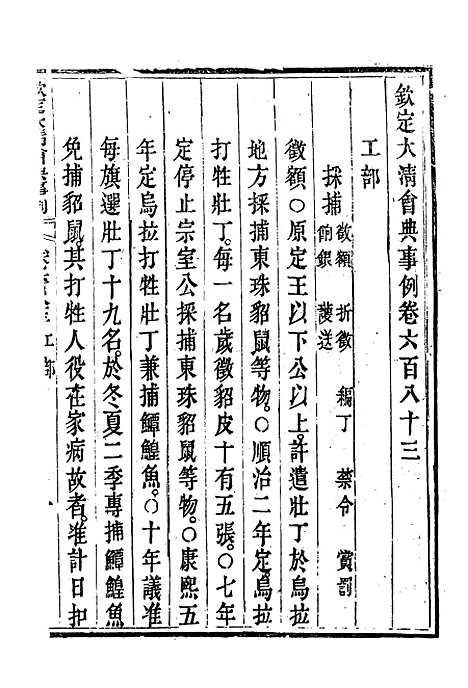 欽定大清會典事例卷六百八十三
工部
採捕 徵額 折徵 編丁 禁令 賞罰
節銀 護送
徵額○原定王以下公以上許遣壯丁於烏拉
地方採捕東珠貂鼠等物○順治二年定烏拉
打牲壯丁每一名歲徵貂皮十有五張○七年
定停止宗室公採捕東珠貂鼠等物○康熙五
年定烏拉打牲壯丁兼捕鱘鰉魚○十年議准
每旗選壯丁十九名於冬夏二季專捕鱘鰉魚
免捕貂鼠其打牲人役在家病故者准計日扣
工部